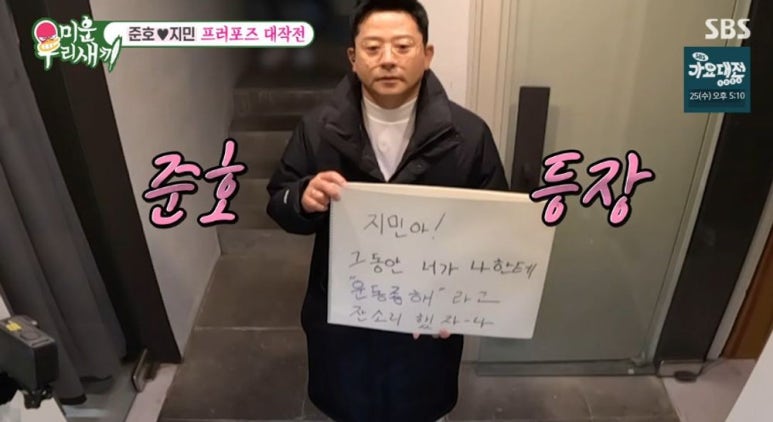 미운
우리새끼
준호♥지민 프러포즈 대작전
SBS
SBS
가요대전
25(수) 오후 5:10
준호 등장
지민아!
그동안 너가 나한테
"운동좀해" 라고
잔소리 했자-나